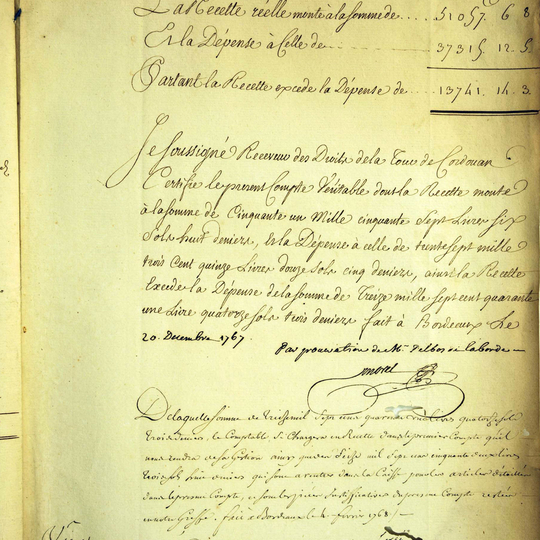 La Recette réelle monte à la somme de .... 51057. 6. 8.
Et la Dépense à Celle de ........ 37315. 12. 5.
Partant la Recette excede la Dépense de ... 13741. 14. 3.
Je soussigné Receveur des Droits de la Tour de Cordouan
Certifie le present Compte Véritable dont la Recette monte
à la somme de Cinquante un Mille cinquante sept Livres six
sols huit deniers, Et la Dépense à celle de trente sept mille
trois Cent quinze Livres douze sols cinq deniers, ainsi la Recette
Excede la Dépense de la somme de Treize mille sept cent quarante
une Livre quatorze sols trois deniers fait à Bordeaux Le
20. Decembre 1767.
Par procuration de M. Delbos de laborde
morel
De laquelle somme de treize mil sept cens quarante livres quatorze sols
trois deniers, le Comptable se Chargera en Recette dans le premier Compte qu'il
nous rendra de sa Gestion ainsy que de seize mil sept cens cinquante
trois sols huit deniers qui sont a rentrer dans la Caisse pour les articles
dans le present Compte, et sont les pieces justificatives du present Compte
notre Greffe. fait a Bordeaux le fevrier 1768